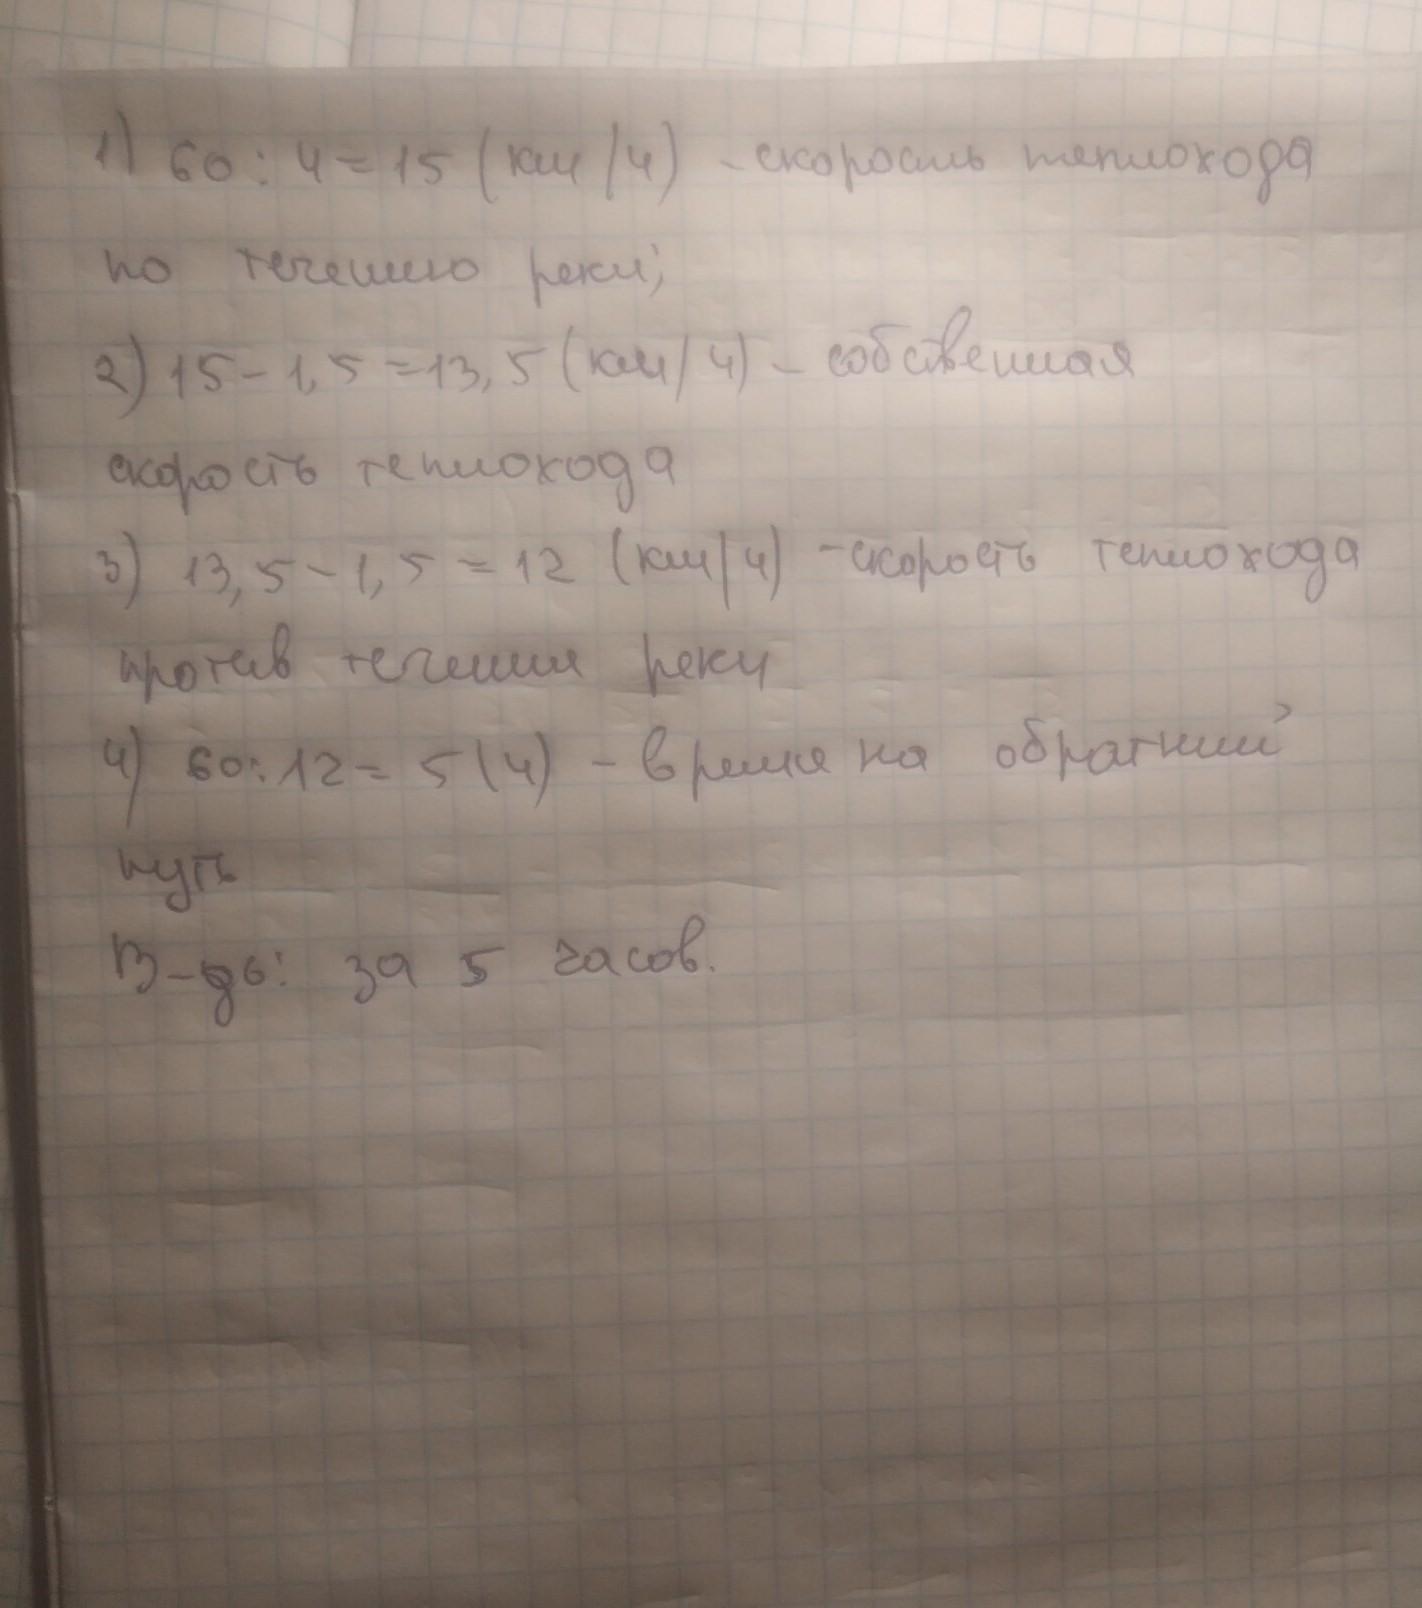 1) 60 : 4 = 15 (км/ч) - скорость теплохода
по течению реки;
2) 15 - 1,5 = 13,5 (км/ч) - собственная
скорость теплохода
3) 13,5 - 1,5 = 12 (км/ч) - скорость теплохода
против течения реки
4) 60 : 12 = 5 (ч) - время на обратний
путь
В-дь: за 5 часов.